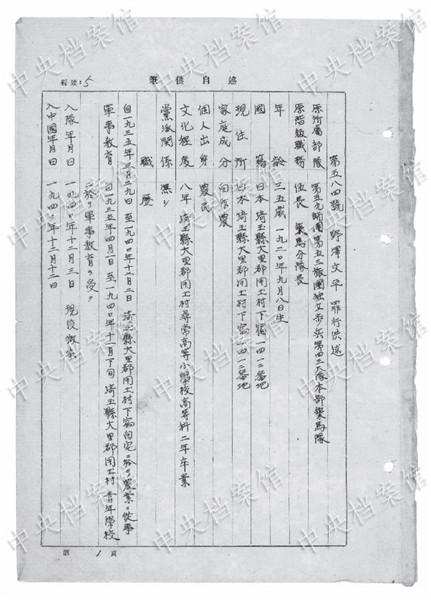 編號:5
述自供筆
第五八四號 野澤文平 罪行供述
原所屬部隊 第五九師團第五三旅團独立步兵第四三大隊本部乗馬隊
原階級職務 伍長 乗馬分隊長
年齡 三五歲 一九二〇年九月八日生
國籍 日本 埼玉縣大里郡用土村下宿一四一二番地
現住所 日本 埼玉縣大里郡用土村下宿一四一二番地
家庭成分 自作農
個人出身 農民
文化程度 八年 埼玉縣大里郡用土村尋常高等小學校高等科二年卒業
黨派関係 無シ
職歷
自一九三五年三月二九日 至一九四〇年十一月下旬 埼玉縣大里郡用土村下宿自宅ニ於テ農業ニ從事
軍事教育 自一九三五年四月一日至一九四〇年十一月下旬埼玉縣大里郡用土村 青年學校
ニ於テ軍事教育ヲ受ク
入隊年月日 一九四〇年十二月三日 現役徴集
入中國年月日 一九四〇年十二月十二日
第 1 頁
中央档案馆
中央档案馆
中央档案馆
中央档案馆